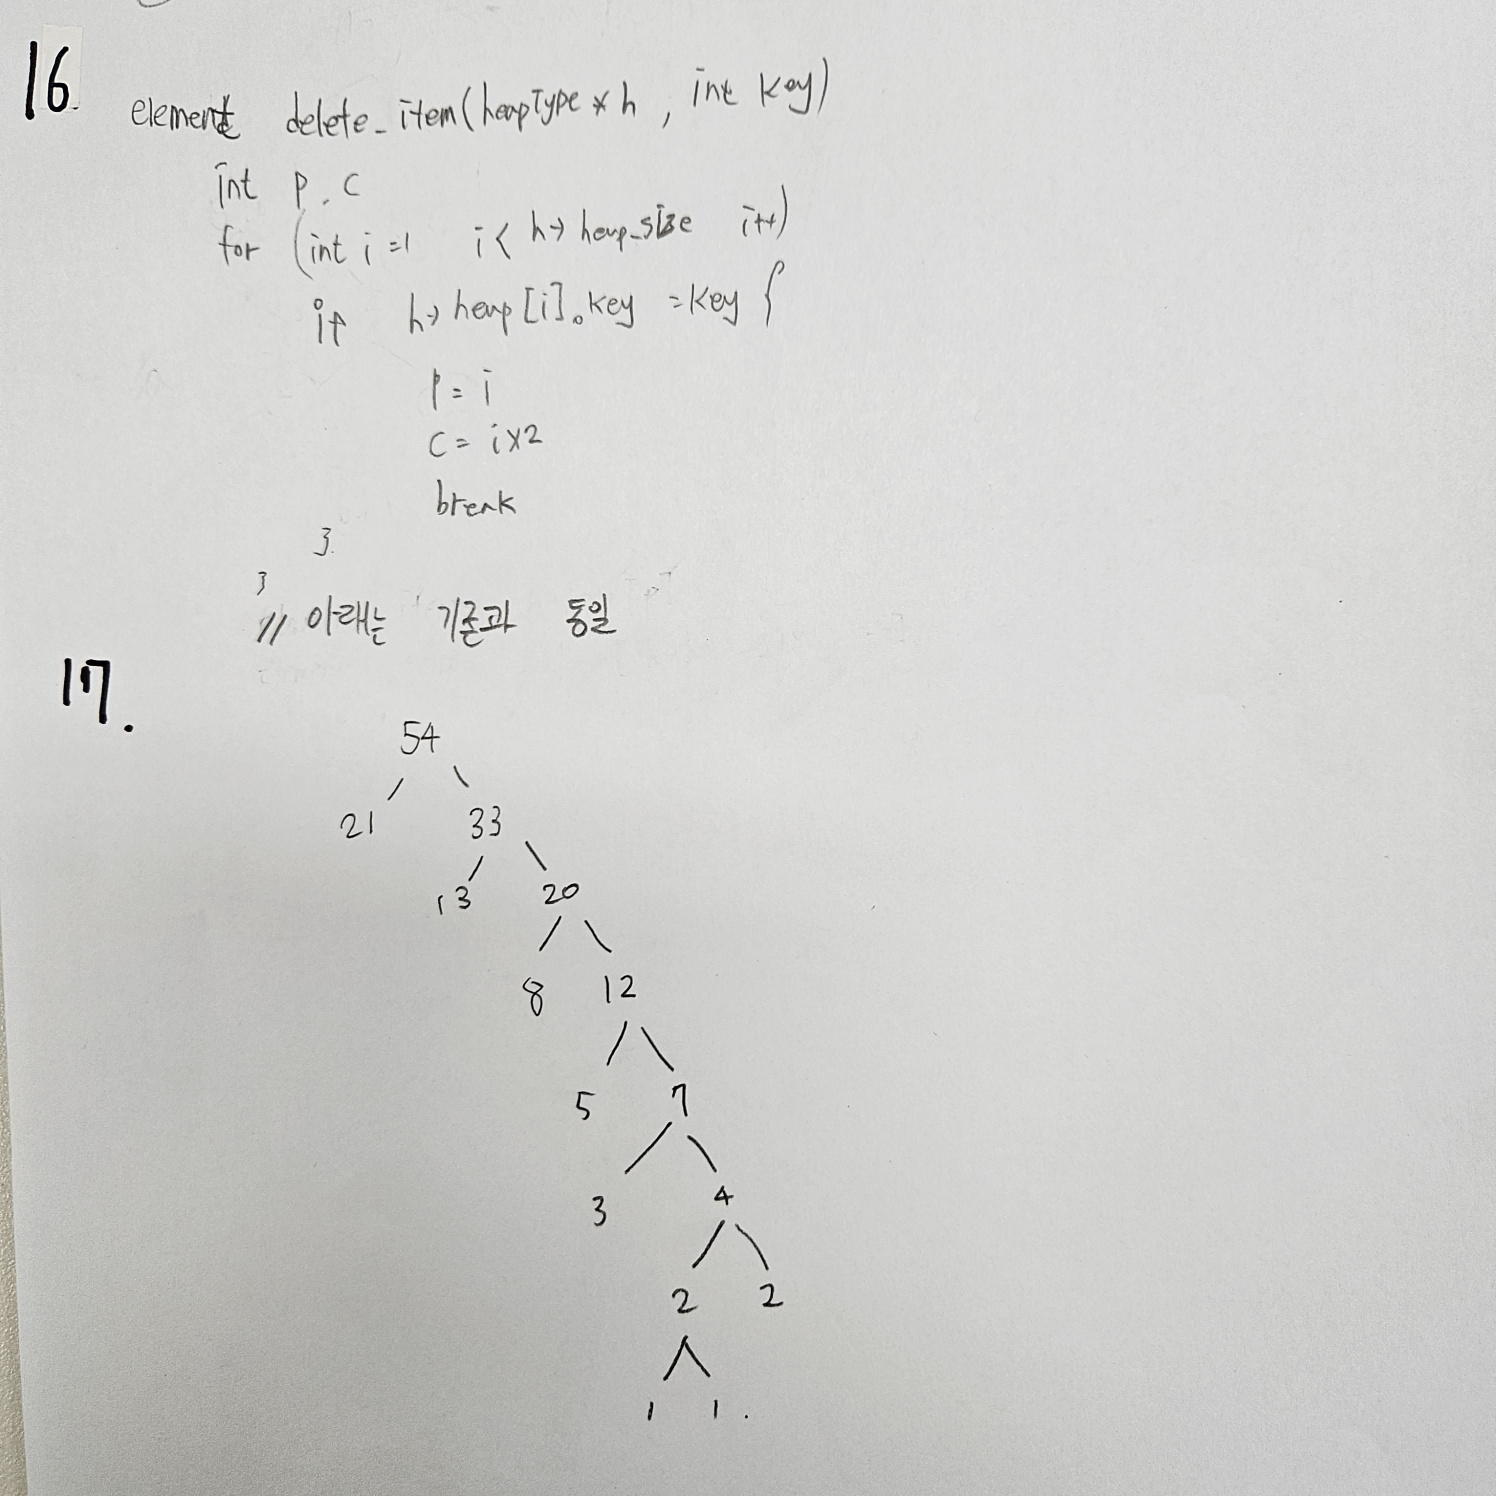 16
element delete_item(heapType * h , int key)
int p, c
for (int i =1 i< h→ heap_size i++)
if h→ heap [i].key =key {
p = i
c = i×2
break
}
}
// 아래는 기존과 동일
17.
54
21 33
13 20
8 12
5 7
3 4
2 2
1 1